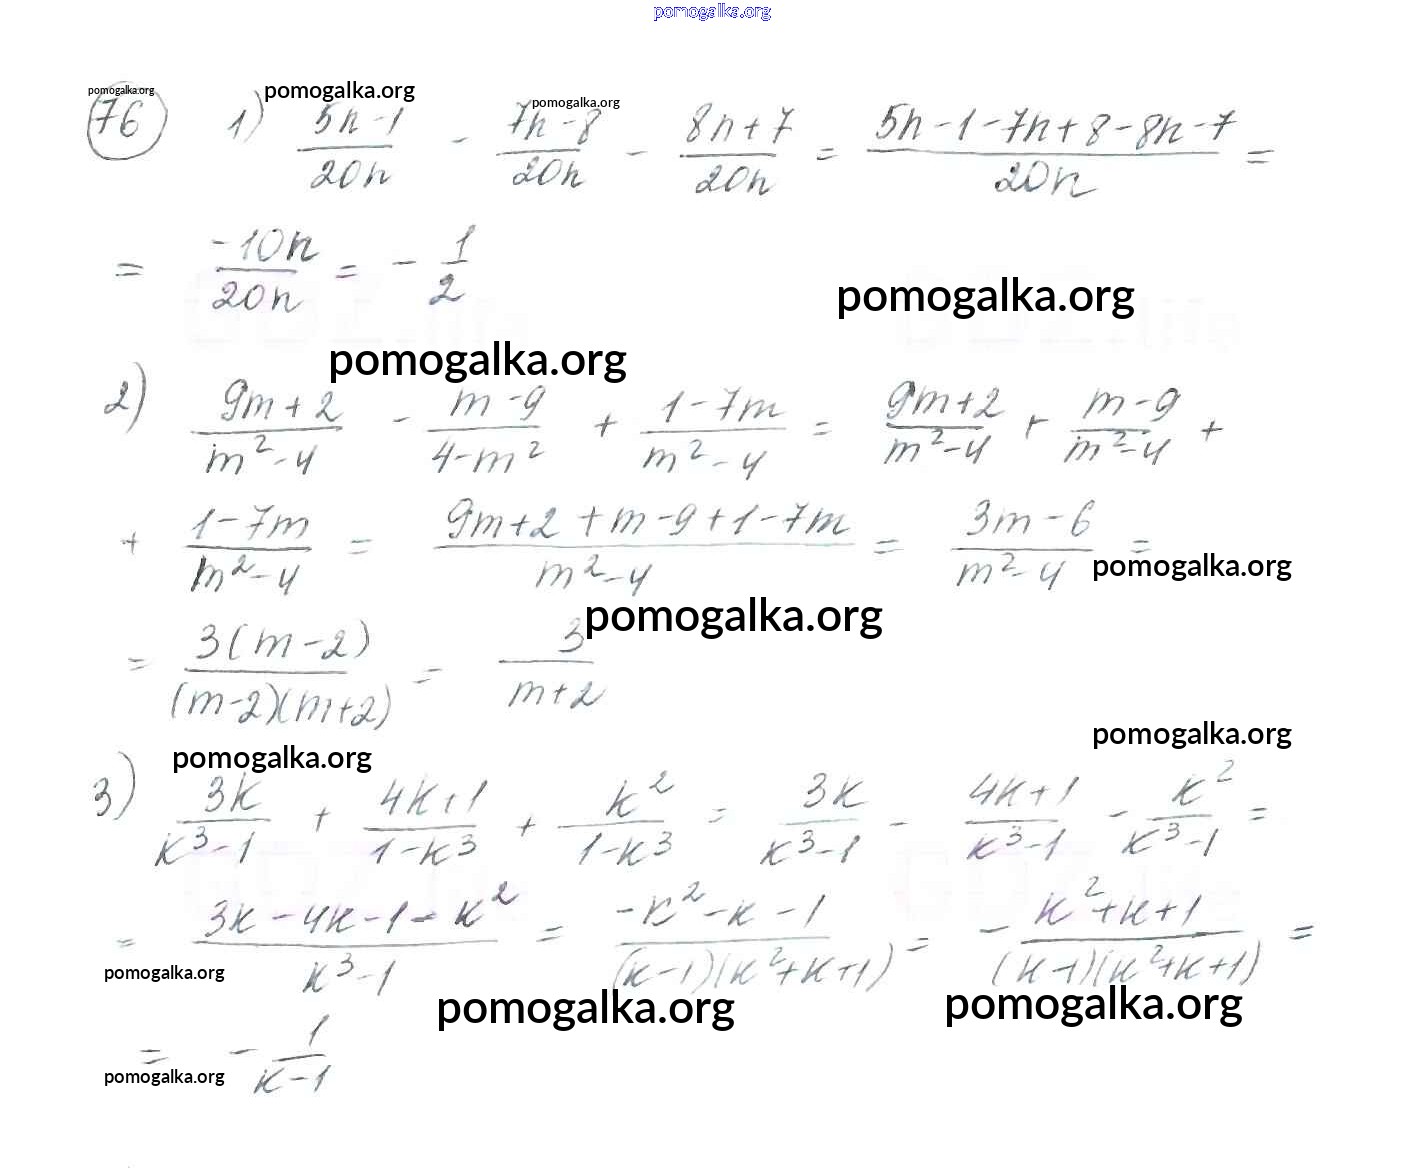 pomogalka.org
pomogalka.org pomogalka.org pomogalka.org
76 1) (5n-1)/(20n) - (7n-8)/(20n) - (8n+7)/(20n) = (5n-1-7n+8-8n-7)/(20n) =
= (-10n)/(20n) = - 1/2
pomogalka.org
pomogalka.org
2) (9m+2)/(m²-4) - (m-9)/(4-m²) + (1-7m)/(m²-4) = (9m+2)/(m²-4) + (m-9)/(m²-4) +
+ (1-7m)/(m²-4) = (9m+2+m-9+1-7m)/(m²-4) = (3m-6)/(m²-4) =
pomogalka.org
pomogalka.org
= (3(m-2))/((m-2)(m+2)) = 3/(m+2)
pomogalka.org
pomogalka.org
3) (3k)/(k³-1) + (4k+1)/(1-k³) + (k²)/(1-k³) = (3k)/(k³-1) - (4k+1)/(k³-1) - (k²)/(k³-1) =
= (3k-4k-1-k²)/(k³-1) = (-k²-k-1)/((k-1)(k²+k+1)) = - (k²+k+1)/((k-1)(k²+k+1)) =
pomogalka.org
pomogalka.org pomogalka.org
= - 1/(k-1)
pomogalka.org